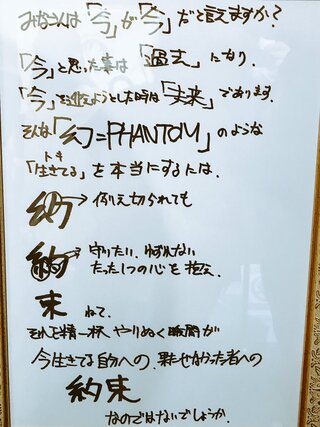 みなさんは「今」が「今」だと言えますか?
「今」と思った事は「過去」になり.
「今」を迎えようとした時は「未来」であります.
そんな「幻=PHANTOM」のような
「生きてる」を本当にするには.
トキ
約→例え切られても
約→守りたい.ゆずれない
たった1つの心を抱え
束ねて.
それを精一杯、やりぬく瞬間が
今生きてる自分への、果せなかった者への
約束
なのではないでしょうか.